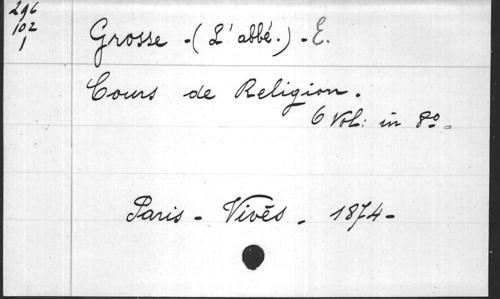 296
102
1
Grosse - (L'abbé.) - E.
Cours de Religion.
6 Vol: in 8o -
Paris - Vivès - 1874 -